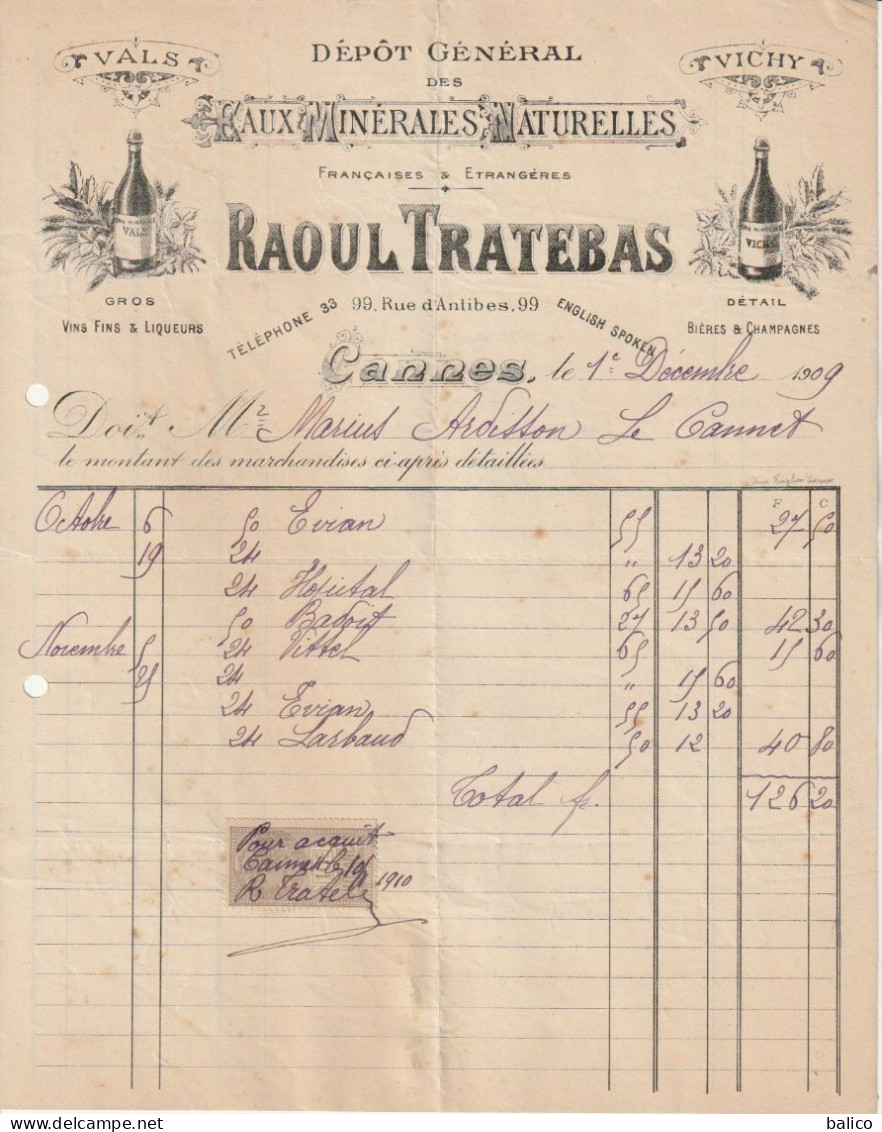 VALS
VICHY
DÉPÔT GÉNÉRAL
DES
EAUX MINÉRALES NATURELLES
FRANÇAISES & ETRANGÈRES
RAOUL TRATEBAS
VALS
VICHY
GROS
VINS FINS & LIQUEURS
DÉTAIL
BIÈRES & CHAMPAGNES
TÉLÉPHONE 33
99, Rue d'Antibes, 99
ENGLISH SPOKEN
Cannes, le 1e Décembre 1909
Doit Mr Marius Ardisson Le Cannet
le montant des marchandises ci-après détaillées
F C
Octobre 6 50 Evian 55 27 50
19 24 " 13 20
24 Hopital 65 15 60
50 Badoit 27 13 50 42 30
Novembre 5 24 Vittel 65 15 60
25 24 " 15 60
24 Evian 55 13 20
24 Larbaud 50 12 40 80
Total fr. 126 20
Pour acquit
Cannes le 1910
R Trateb
balico